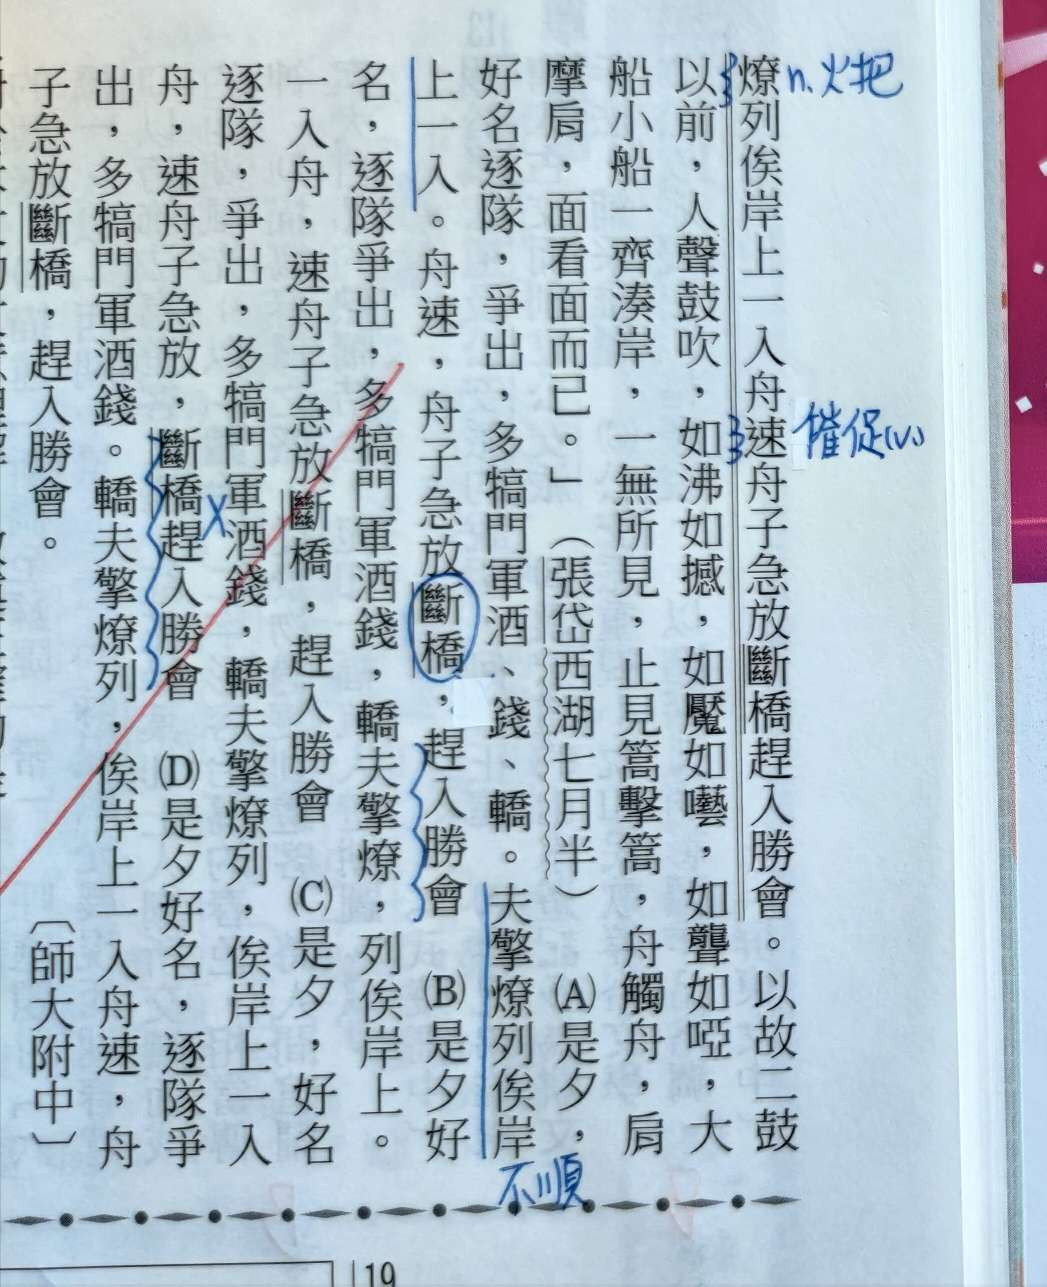 n.火把
催促(v.)
燎列俟岸上一入舟速舟子急放斷橋趕入勝會。以故二鼓
以前，人聲鼓吹，如沸如撼，如魘如囈，如聾如啞，大
船小船一齊湊岸，一無所見，止見篙擊篙，舟觸舟，肩
摩肩，面看面而已。」（張岱西湖七月半） (A)是夕，
好名逐隊，爭出，多犒門軍酒、錢、轎。夫擎燎列俟岸
不順
上一入。舟速，舟子急放斷橋，趕入勝會 (B)是夕好
名，逐隊爭出，多犒門軍酒錢，轎夫擎燎，列俟岸上。
一入舟，速舟子急放斷橋，趕入勝會 (C)是夕，好名
逐隊，爭出，多犒門軍酒錢，轎夫擎燎列，俟岸上一入
舟，速舟子急放，斷橋趕入勝會 (D)是夕好名，逐隊爭
X
出，多犒門軍酒錢。轎夫擎燎列，俟岸上一入舟速，舟
子急放斷橋，趕入勝會。 〔師大附中〕
19